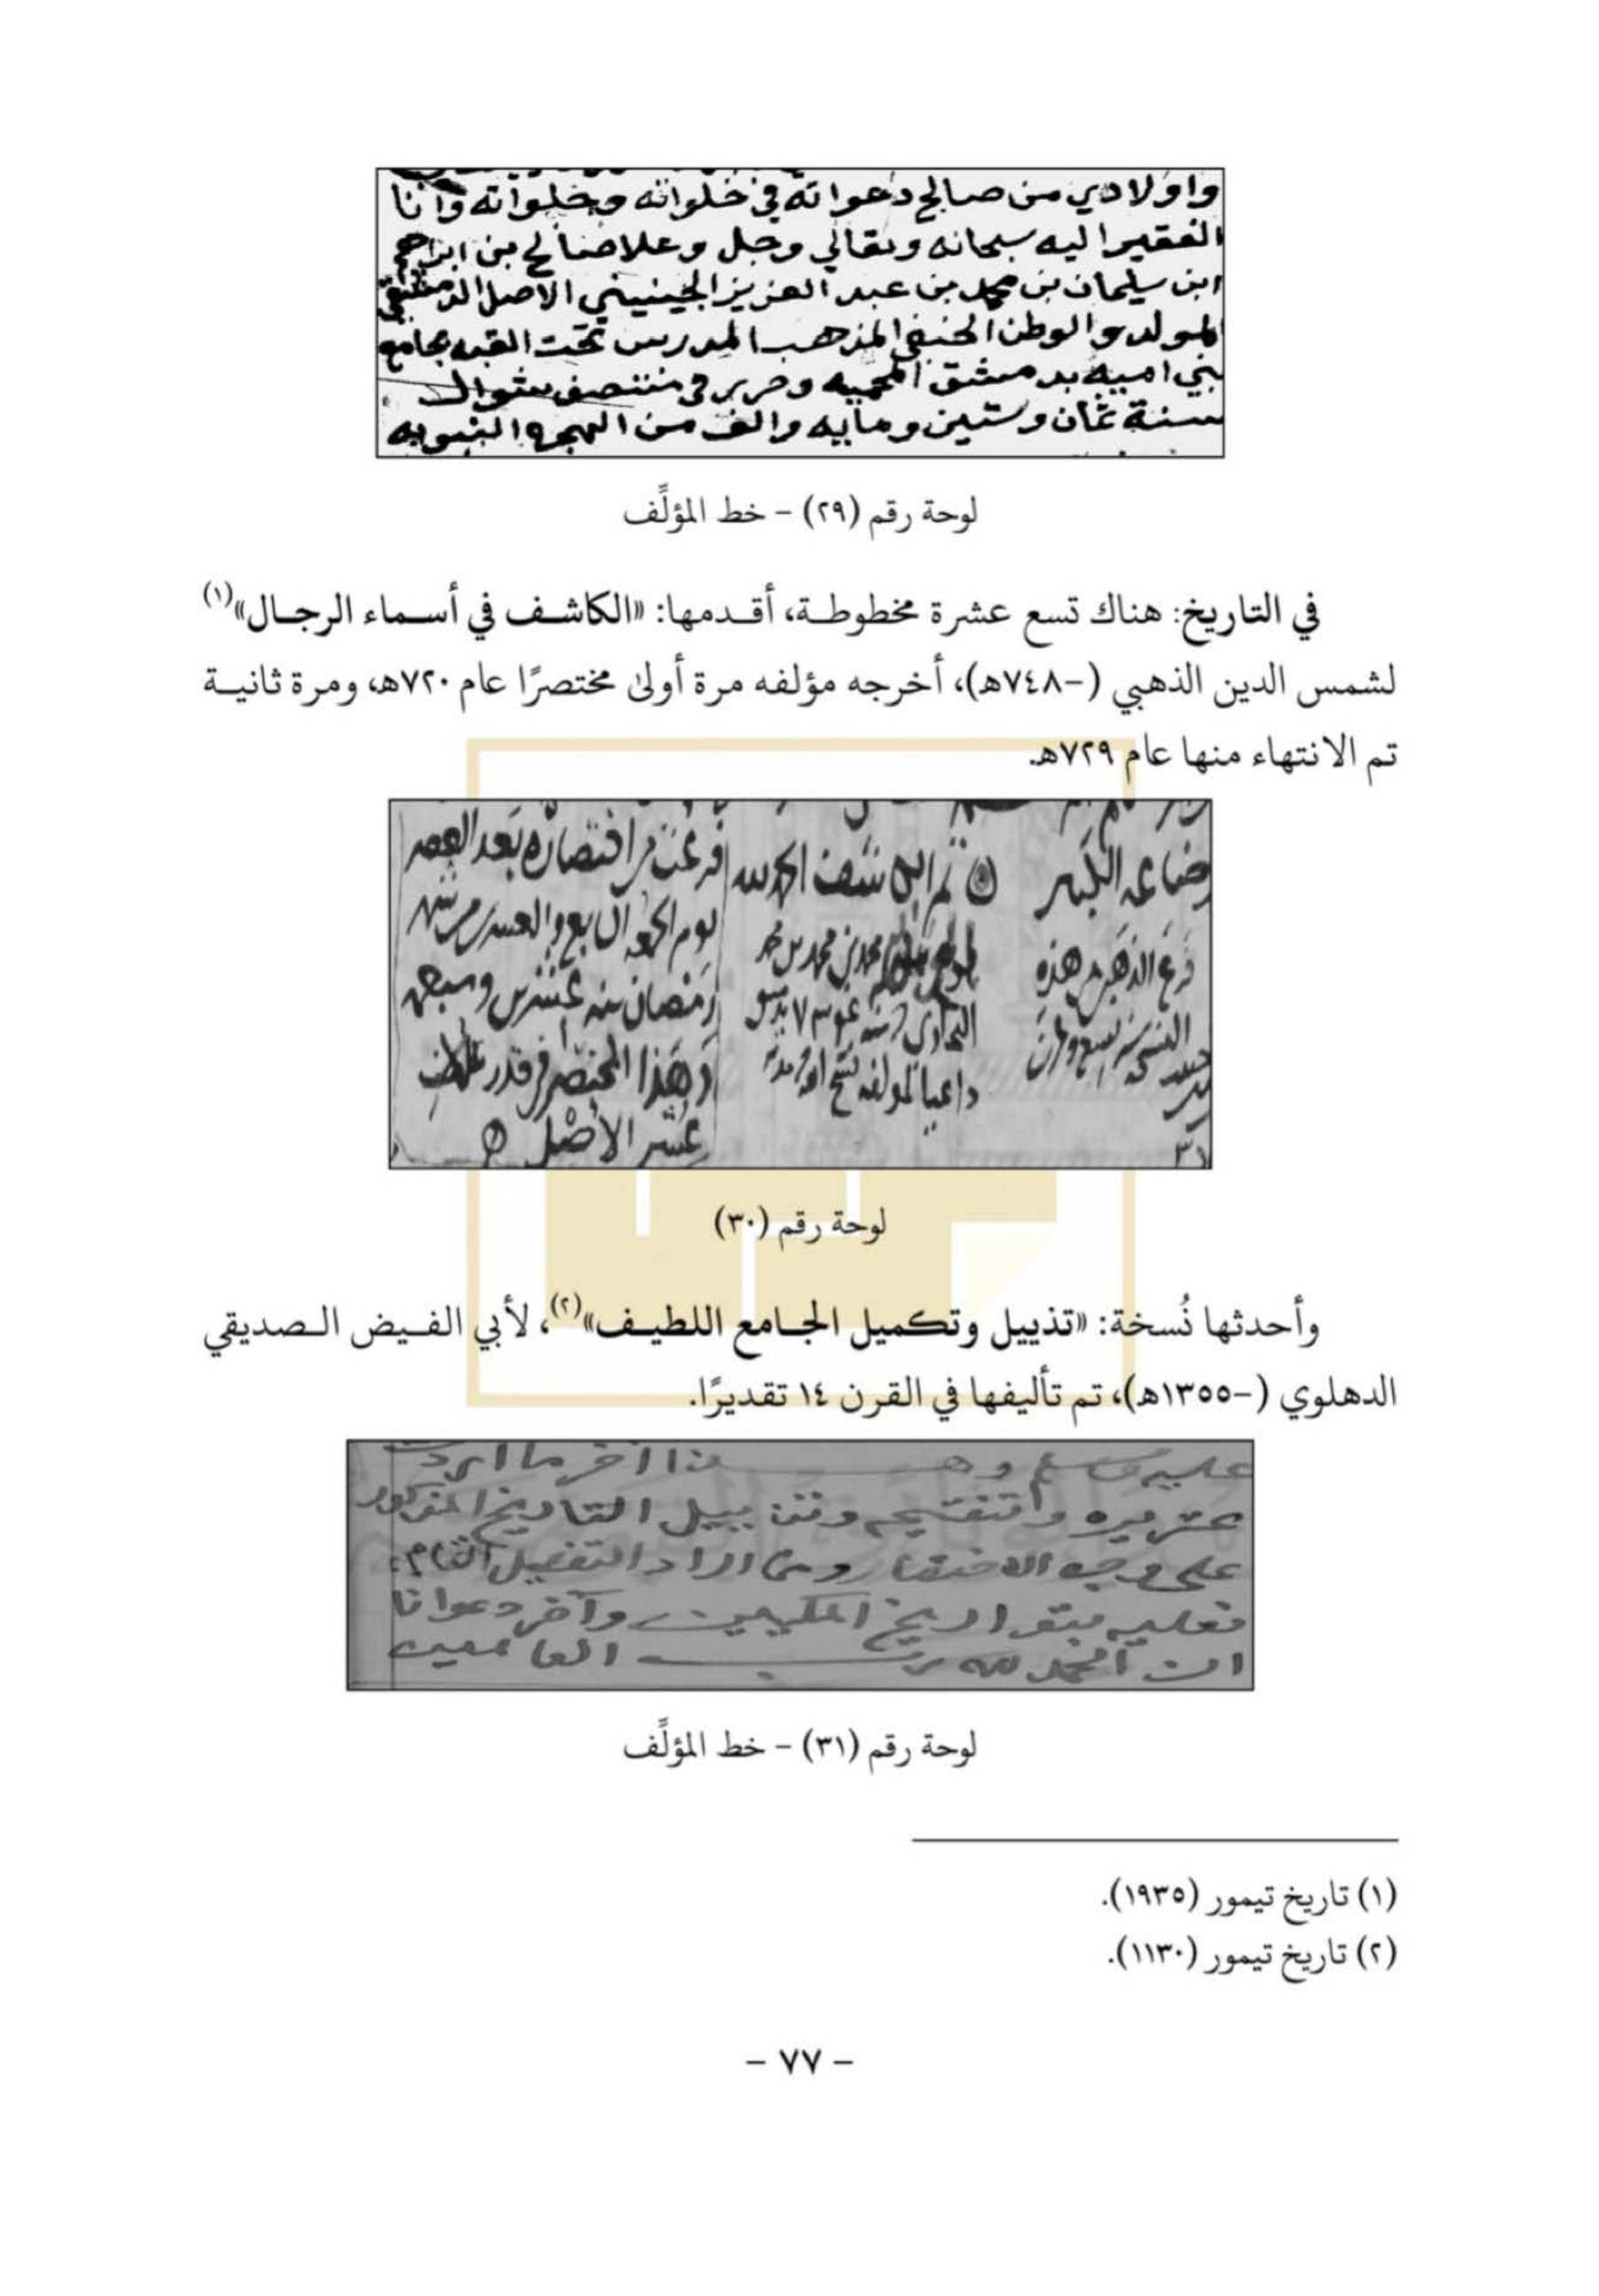 واولادي من صالح دعواته في خلواته وجلواته وانا
الفقير اليه سبحانه وتعالي وجل وعلا صالح بن ابراهيم
ابن سليمان بن محمد بن عبد العزيز الجينيني الاصل الدمشقي
المولد والوطن الحنفي المذهب المدرس تحت القبه بجامع
بني اميه بدمشق المحميه وحرر في منتصف شوال
سنة ثمان وستين ومايه والف من الهجره النبويه
لوحة رقم (٢٩) - خط المؤلِّف
في التاريخ: هناك تسع عشرة مخطوطة، أقدمها: «الكاشف في أسماء الرجال»(١)
لشمس الدين الذهبي (-٧٤٨هـ)، أخرجه مؤلفه مرة أولىٰ مختصرًا عام ٧٢٠هـ، ومرة ثانية
تم الانتهاء منها عام ٧٢٩هـ.
فرغت من اختصاره بعد العصر
رمضان سنه عشرين وسبعمـ
وهذا المختصر في قدر
عشر الأصل
لوحة رقم (٣٠)
وأحدثها نُسخة: «تذييل وتكميل الجامع اللطيف»(٢)، لأبي الفيض الصديقي
الدهلوي (-١٣٥٥هـ)، تم تأليفها في القرن ١٤ تقديرًا.
وهذا آخر ما اردت
تحريره وتنقيحه وتذييل التاريخ المذكور
على وجه الاختصار ومن اراد التفصيل التام
فعليه بتواريخ المكيين وآخر دعوانا
ان الحمد لله رب العالمين
لوحة رقم (٣١) - خط المؤلِّف
(١) تاريخ تيمور (١٩٣٥).
(٢) تاريخ تيمور (١١٣٠).
- ٧٧ -